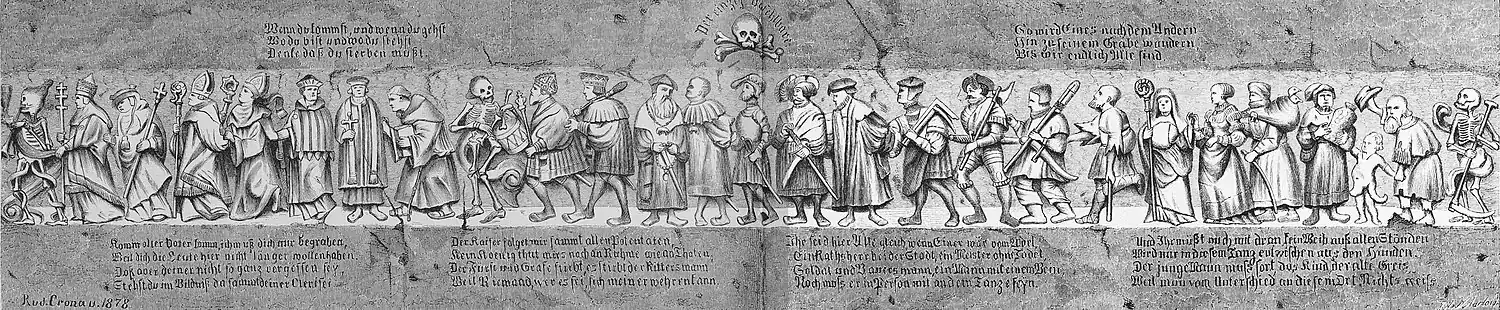 Wenn du kommst, und wenn du gehst
Wo du bist und wo du stehst
Denke daß du sterben mußt.
Der Todt
So wird Eines nach dem Andern
Hin zu seinem Grabe wandern
Bis wir endlich Alle sind
Komm alter Vater komm, ich muß dich nur begraben,
Weil dich die Leute hier nicht länger wollen haben,
Doß aber deiner nicht so ganz vergessen sey
Stehst du im Bildniß da sammt deiner Clerisei
Der Kaiser folget mir sammt allen Potentaten
Kein Koenig thut mirs noch an Ruhme
Der Fürst und Grafe stirbt, es stirbt der Rittersmann
Weil Niemand wer es sei, sich meiner wehren kann.
Ihr seid hier Alle gleich, wenn Einer wär vom Adel
Ein Rathsherr bei der Stadt, ein Meister ohne Tadel
Soldat und Bauersmann, ein Mann mit einem Bein
Noch muß er in Person mit an dem Tanze seyn.
Und Ihr müßt auch mit dran kein Weib aus allen Ständen
Wird nur in diesem Tanz entwischen aus den Händen.
Der junge Mann muß fort, das Kind der alte Greis
Weil man vom Unterschied an diesem Ort Nichts weis
Rud. Cronau. 1878.